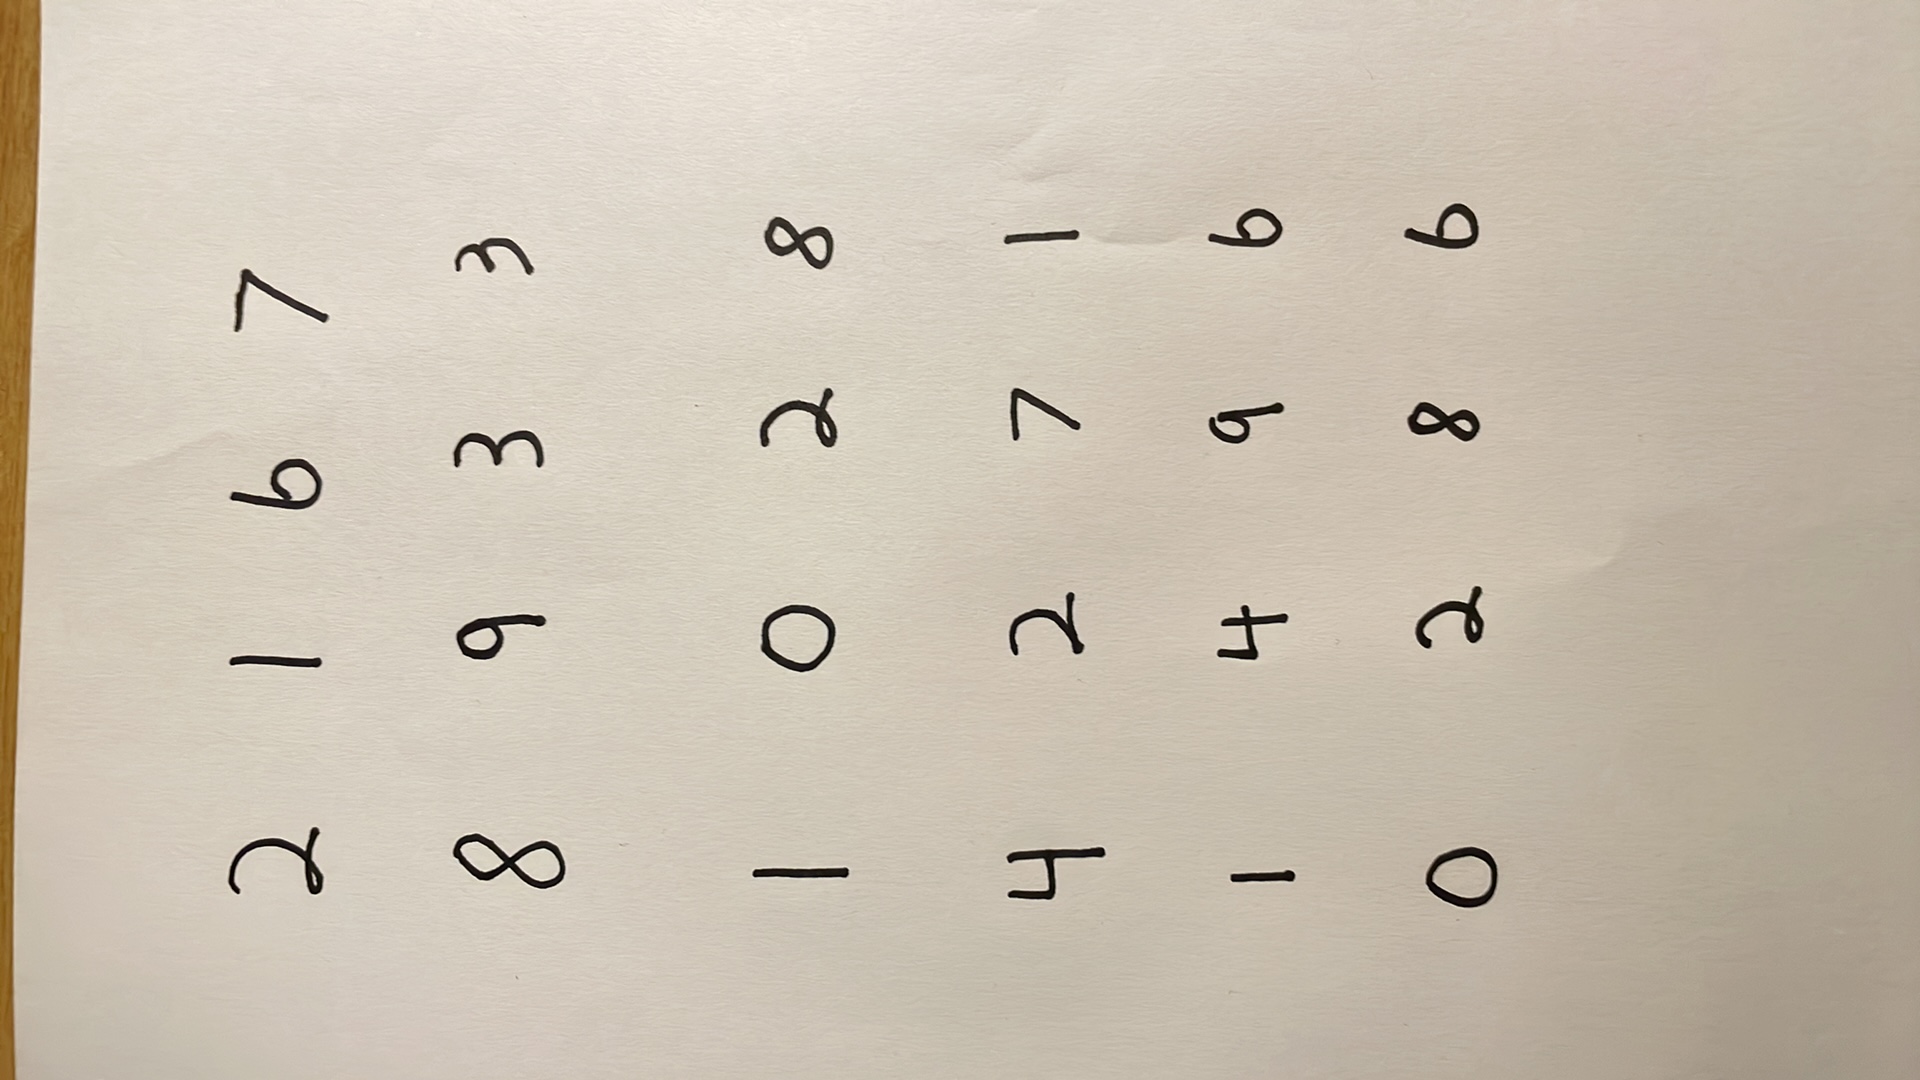 2 1 6 7
8 9 3 3
1 0 2 8
4 2 7 1
1 4 9 6
0 2 8 6